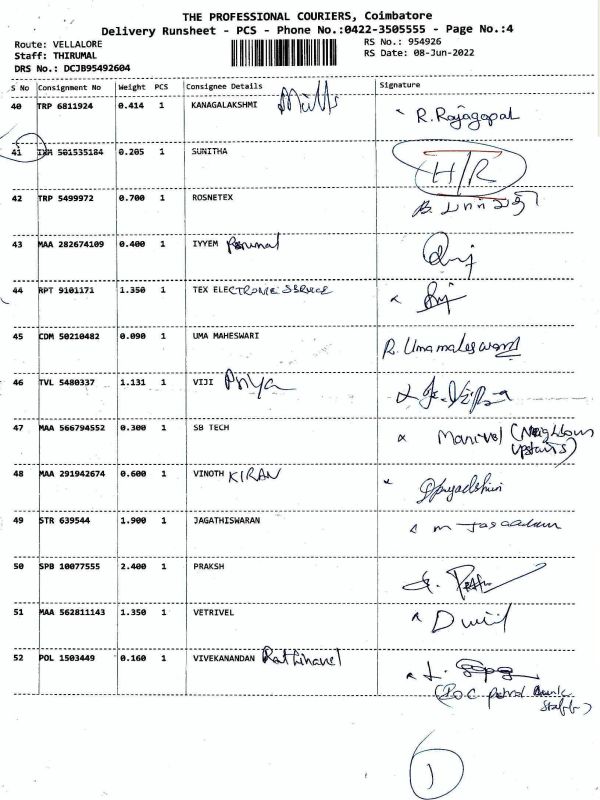 THE PROFESSIONAL COURIERS, Coimbatore
Delivery Runsheet - PCS - Phone No.:0422-3505555 - Page No.:4
Route: VELLALORE
RS No.: 954926
Staff: THIRUMAL
RS Date: 08-Jun-2022
DRS No.: DCJB95492604
S No Consignment No Weight PCS Consignee Details Signature
40 TRP 6811924 0.414 1 KANAGALAKSHMI Mills R. Rajagopal
41 501535184 0.205 1 SUNITHA H/R
42 TRP 5499972 0.700 1 ROSNETEX
43 MAA 282674109 0.400 1 IYYEM Perumal
44 RPT 9101171 1.350 1 TEX ELECTRONIC SERVICE
45 CDM 50210482 0.090 1 UMA MAHESWARI R. Umamaheswari
46 TVL 5480337 1.131 1 VIJI Priya
47 MAA 566794552 0.300 1 SB TECH Manivel (Neighbour
upstairs)
48 MAA 291942674 0.600 1 VINOTH KIRAN
49 STR 639544 1.900 1 JAGATHISWARAN
50 SPB 10077555 2.400 1 PRAKSH
51 MAA 562811143 1.350 1 VETRIVEL
52 POL 1503449 0.160 1 VIVEKANANDAN Rathinavel
(IOC petrol bunk
staff)
1